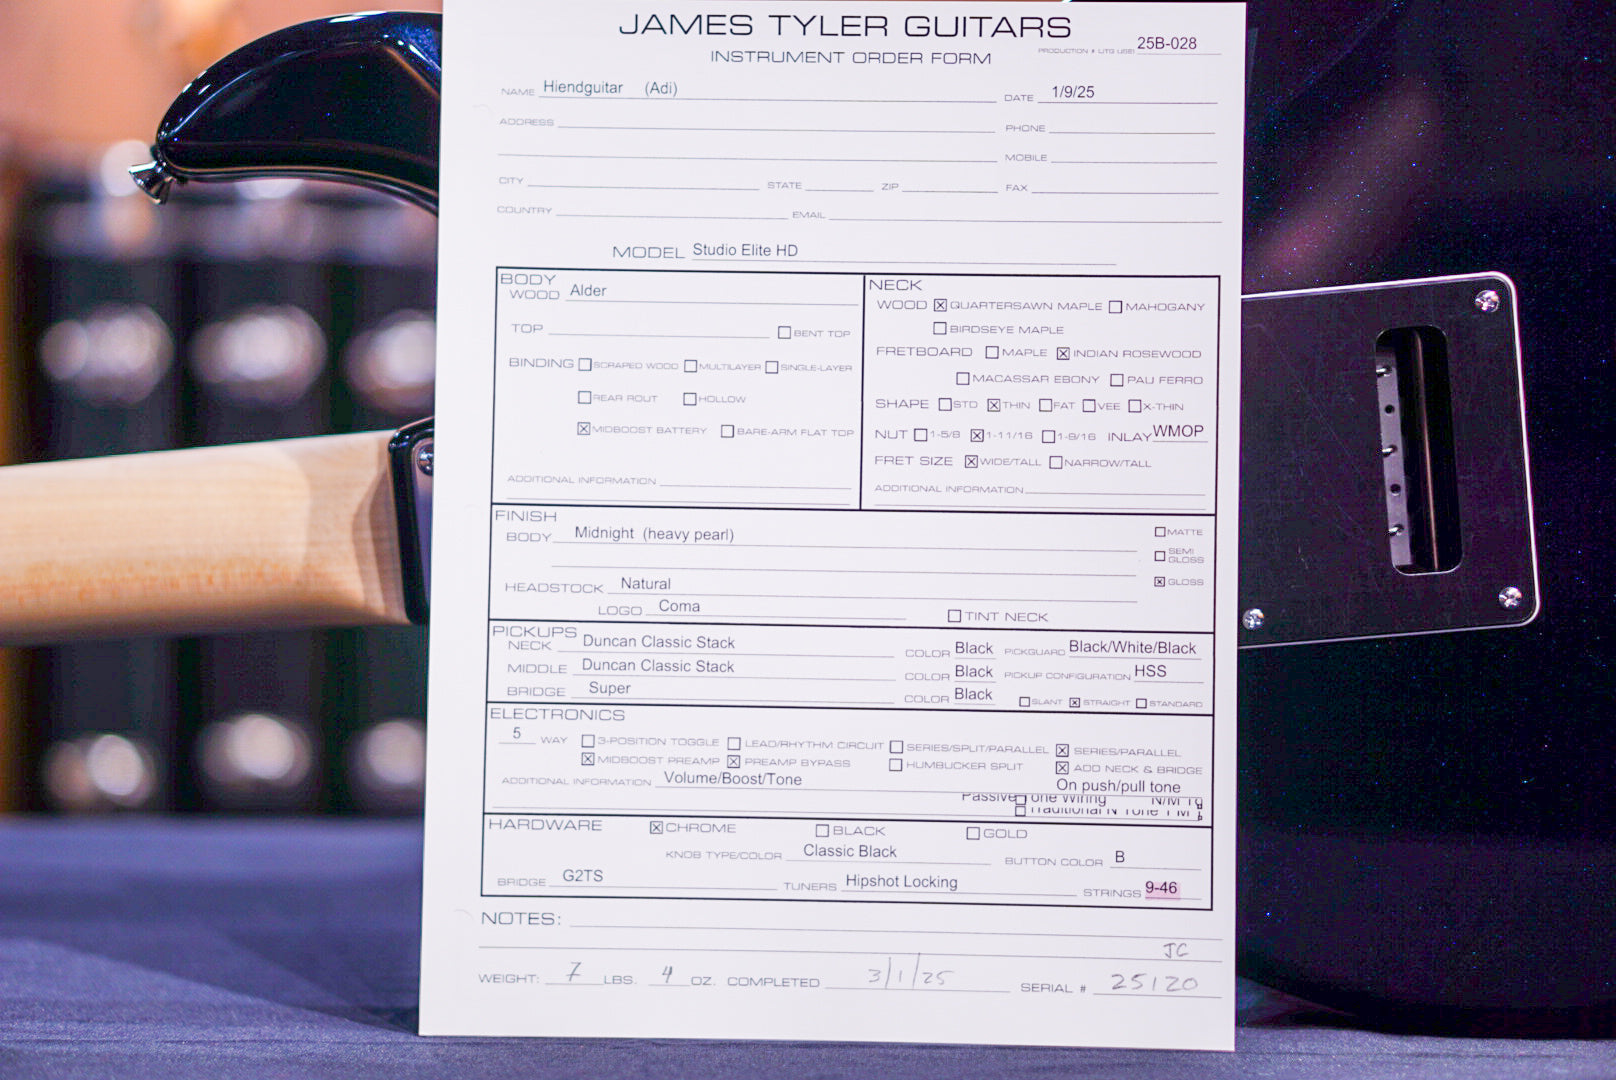 JAMES TYLER GUITARS
INSTRUMENT ORDER FORM PRODUCTION # (JTG USE) 25B-028
NAME Hiendguitar (Adi) DATE 1/9/25
ADDRESS PHONE
MOBILE
CITY STATE ZIP FAX
COUNTRY EMAIL
MODEL Studio Elite HD
BODY
WOOD Alder
TOP BENT TOP
BINDING SCRAPED WOOD MULTILAYER SINGLE-LAYER
REAR ROUT HOLLOW
☒ MIDBOOST BATTERY BARE-ARM FLAT TOP
ADDITIONAL INFORMATION
NECK
WOOD ☒ QUARTERSAWN MAPLE MAHOGANY
BIRDSEYE MAPLE
FRETBOARD MAPLE ☒ INDIAN ROSEWOOD
MACASSAR EBONY PAU FERRO
SHAPE STD ☒ THIN FAT VEE X-THIN
NUT 1-5/8 ☒ 1-11/16 1-9/16 INLAY WMOP
FRET SIZE ☒ WIDE/TALL NARROW/TALL
ADDITIONAL INFORMATION
FINISH
BODY Midnight (heavy pearl)
MATTE
SEMI GLOSS
☒ GLOSS
HEADSTOCK Natural
LOGO Coma TINT NECK
PICKUPS
NECK Duncan Classic Stack COLOR Black PICKGUARD Black/White/Black
MIDDLE Duncan Classic Stack COLOR Black PICKUP CONFIGURATION HSS
BRIDGE Super COLOR Black SLANT ☒ STRAIGHT STANDARD
ELECTRONICS
5 WAY 3-POSITION TOGGLE LEAD/RHYTHM CIRCUIT SERIES/SPLIT/PARALLEL ☒ SERIES/PARALLEL
☒ MIDBOOST PREAMP ☒ PREAMP BYPASS HUMBUCKER SPLIT ☒ ADD NECK & BRIDGE
ADDITIONAL INFORMATION Volume/Boost/Tone On push/pull tone
Passive Tone Wiring
Traditional
HARDWARE ☒ CHROME BLACK GOLD
KNOB TYPE/COLOR Classic Black BUTTON COLOR B
BRIDGE G2TS TUNERS Hipshot Locking STRINGS 9-46
NOTES:
JC
WEIGHT: 7 LBS. 4 OZ. COMPLETED 3/1/25 SERIAL # 25120